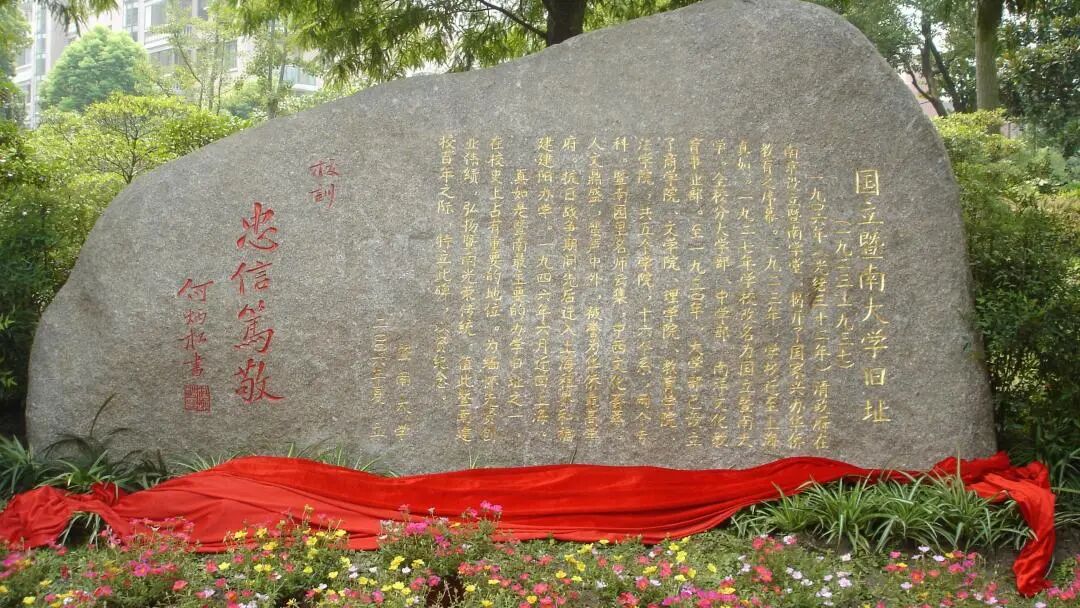 国立暨南大学旧址
(一九二三—一九三七)
一九〇六年(光绪三十二年)清政府在
南京设立暨南学堂,揭开了国家兴办华侨
教育之序幕。一九二三年,学校迁至上海
真如,一九二七年学校改名为国立暨南大
学,全校分大学部、中学部、南洋文化教
育事业部。至一九三〇年,大学部已设立
了商学院、文学院、理学院、教育学院、
法学院,共五个学院,十六个系,两个专
科。暨南园里名师云集,中西文化荟萃,
人文鼎盛,蜚声中外,被誉为华侨最高学
府。抗日战争期间先后迁入上海租界和福
建建阳办学。一九四六年六月迁回上海。
真如是暨南最主要的办学旧址之一,
在校史上占有重要的地位。为缅怀先贤创
业伟绩,弘扬暨南光荣传统,值此暨南建
校百年之际,特立此碑,以资纪念。
暨南大学
二〇〇六年夏 立
校训
忠信笃敬
何炳松书